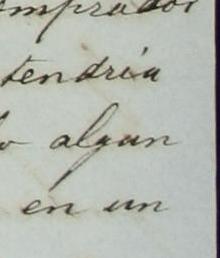 comprador
tendría
algun
en un